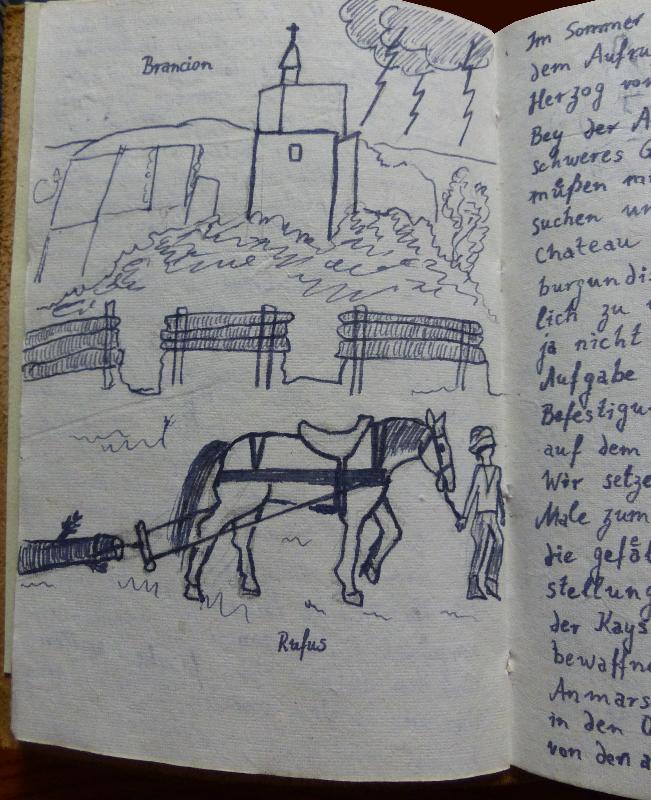 Brancion
Rufus
Im Sommer
dem Aufru
Herzog von
Bey der A
schweres G
müßen mi
suchen un
Chateau
burgundis
lich zu
ja nicht
Aufgabe
Befestigu
auf dem
Wir setze
Male zum
die gefä
stellung
der Kays
bewaffne
Anmars
in den O
von den a